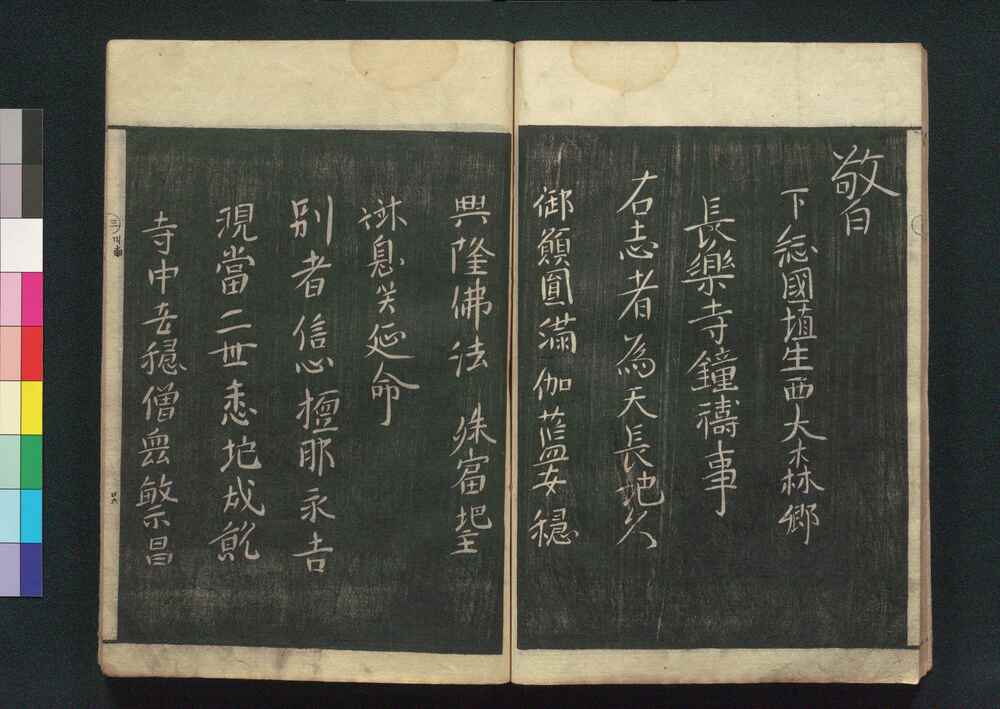 敬白
下総國埴生西大森郷
長樂寺鐘禱事
右志者為天長地久
御願圓滿伽藍安穩
興隆佛法殊當地主
災延命
別者信心檀那永吉
現當二世悉地成就
寺中安穩僧衆繁昌